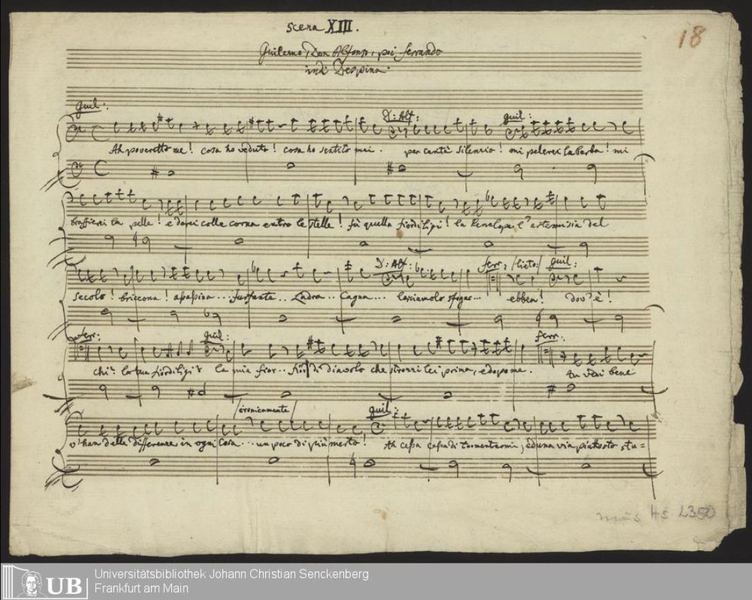 scena XIII.
18
Guilelmo, Don Alfonso, poi ferrando
indi Despina.
guil:
D: Alf: guil:
Ah poveretto me! cosa ho veduto! cosa ho sentito mai. per carità silenzio! mi pelerei la barba! mi
graffierei la pelle! e darei colle corna entro le stelle! fù quella fiordiligi! la Penelope, l'artemisia del
D: Alf: ferr: /lieto/ guil:
secolo! briccona! assassina... furfante... Ladra... Cagna... lasciamolo sfogar... ebben! dov'è!
ferr: guil: ferr:
chi? la tua fiordiligi? la mia fior... fior di diavolo che strozzi lei prima, e dopo me. tu vedi bene
/ironicamente/ guil:
v'han delle differenze in ogni cosa... un poco di più merto! Ah cessa cessa di tormentarmi, ed una via piuttosto stu=
Hs 2350
UB
Universitätsbibliothek Johann Christian Senckenberg
Frankfurt am Main